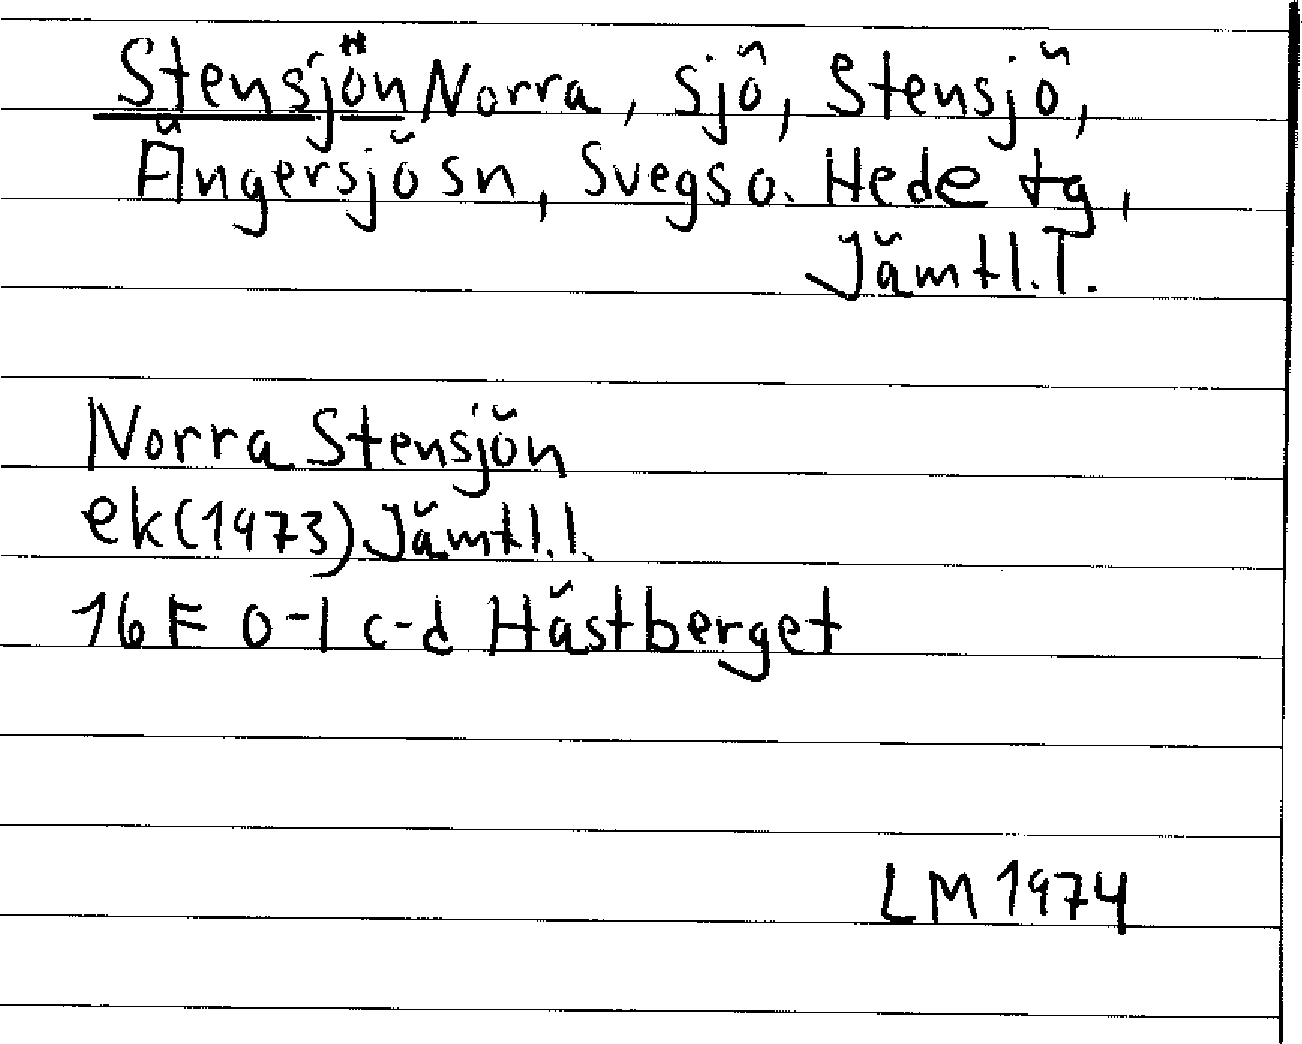 Stensjön Norra, sjö, Stensjö,
Ängersjö sn, Svegs o. Hede tg,
Jämtl. l.
Norra Stensjön
ek (1973) Jämtl. l.
16 F 0-1 c-d Hästberget
LM 1974